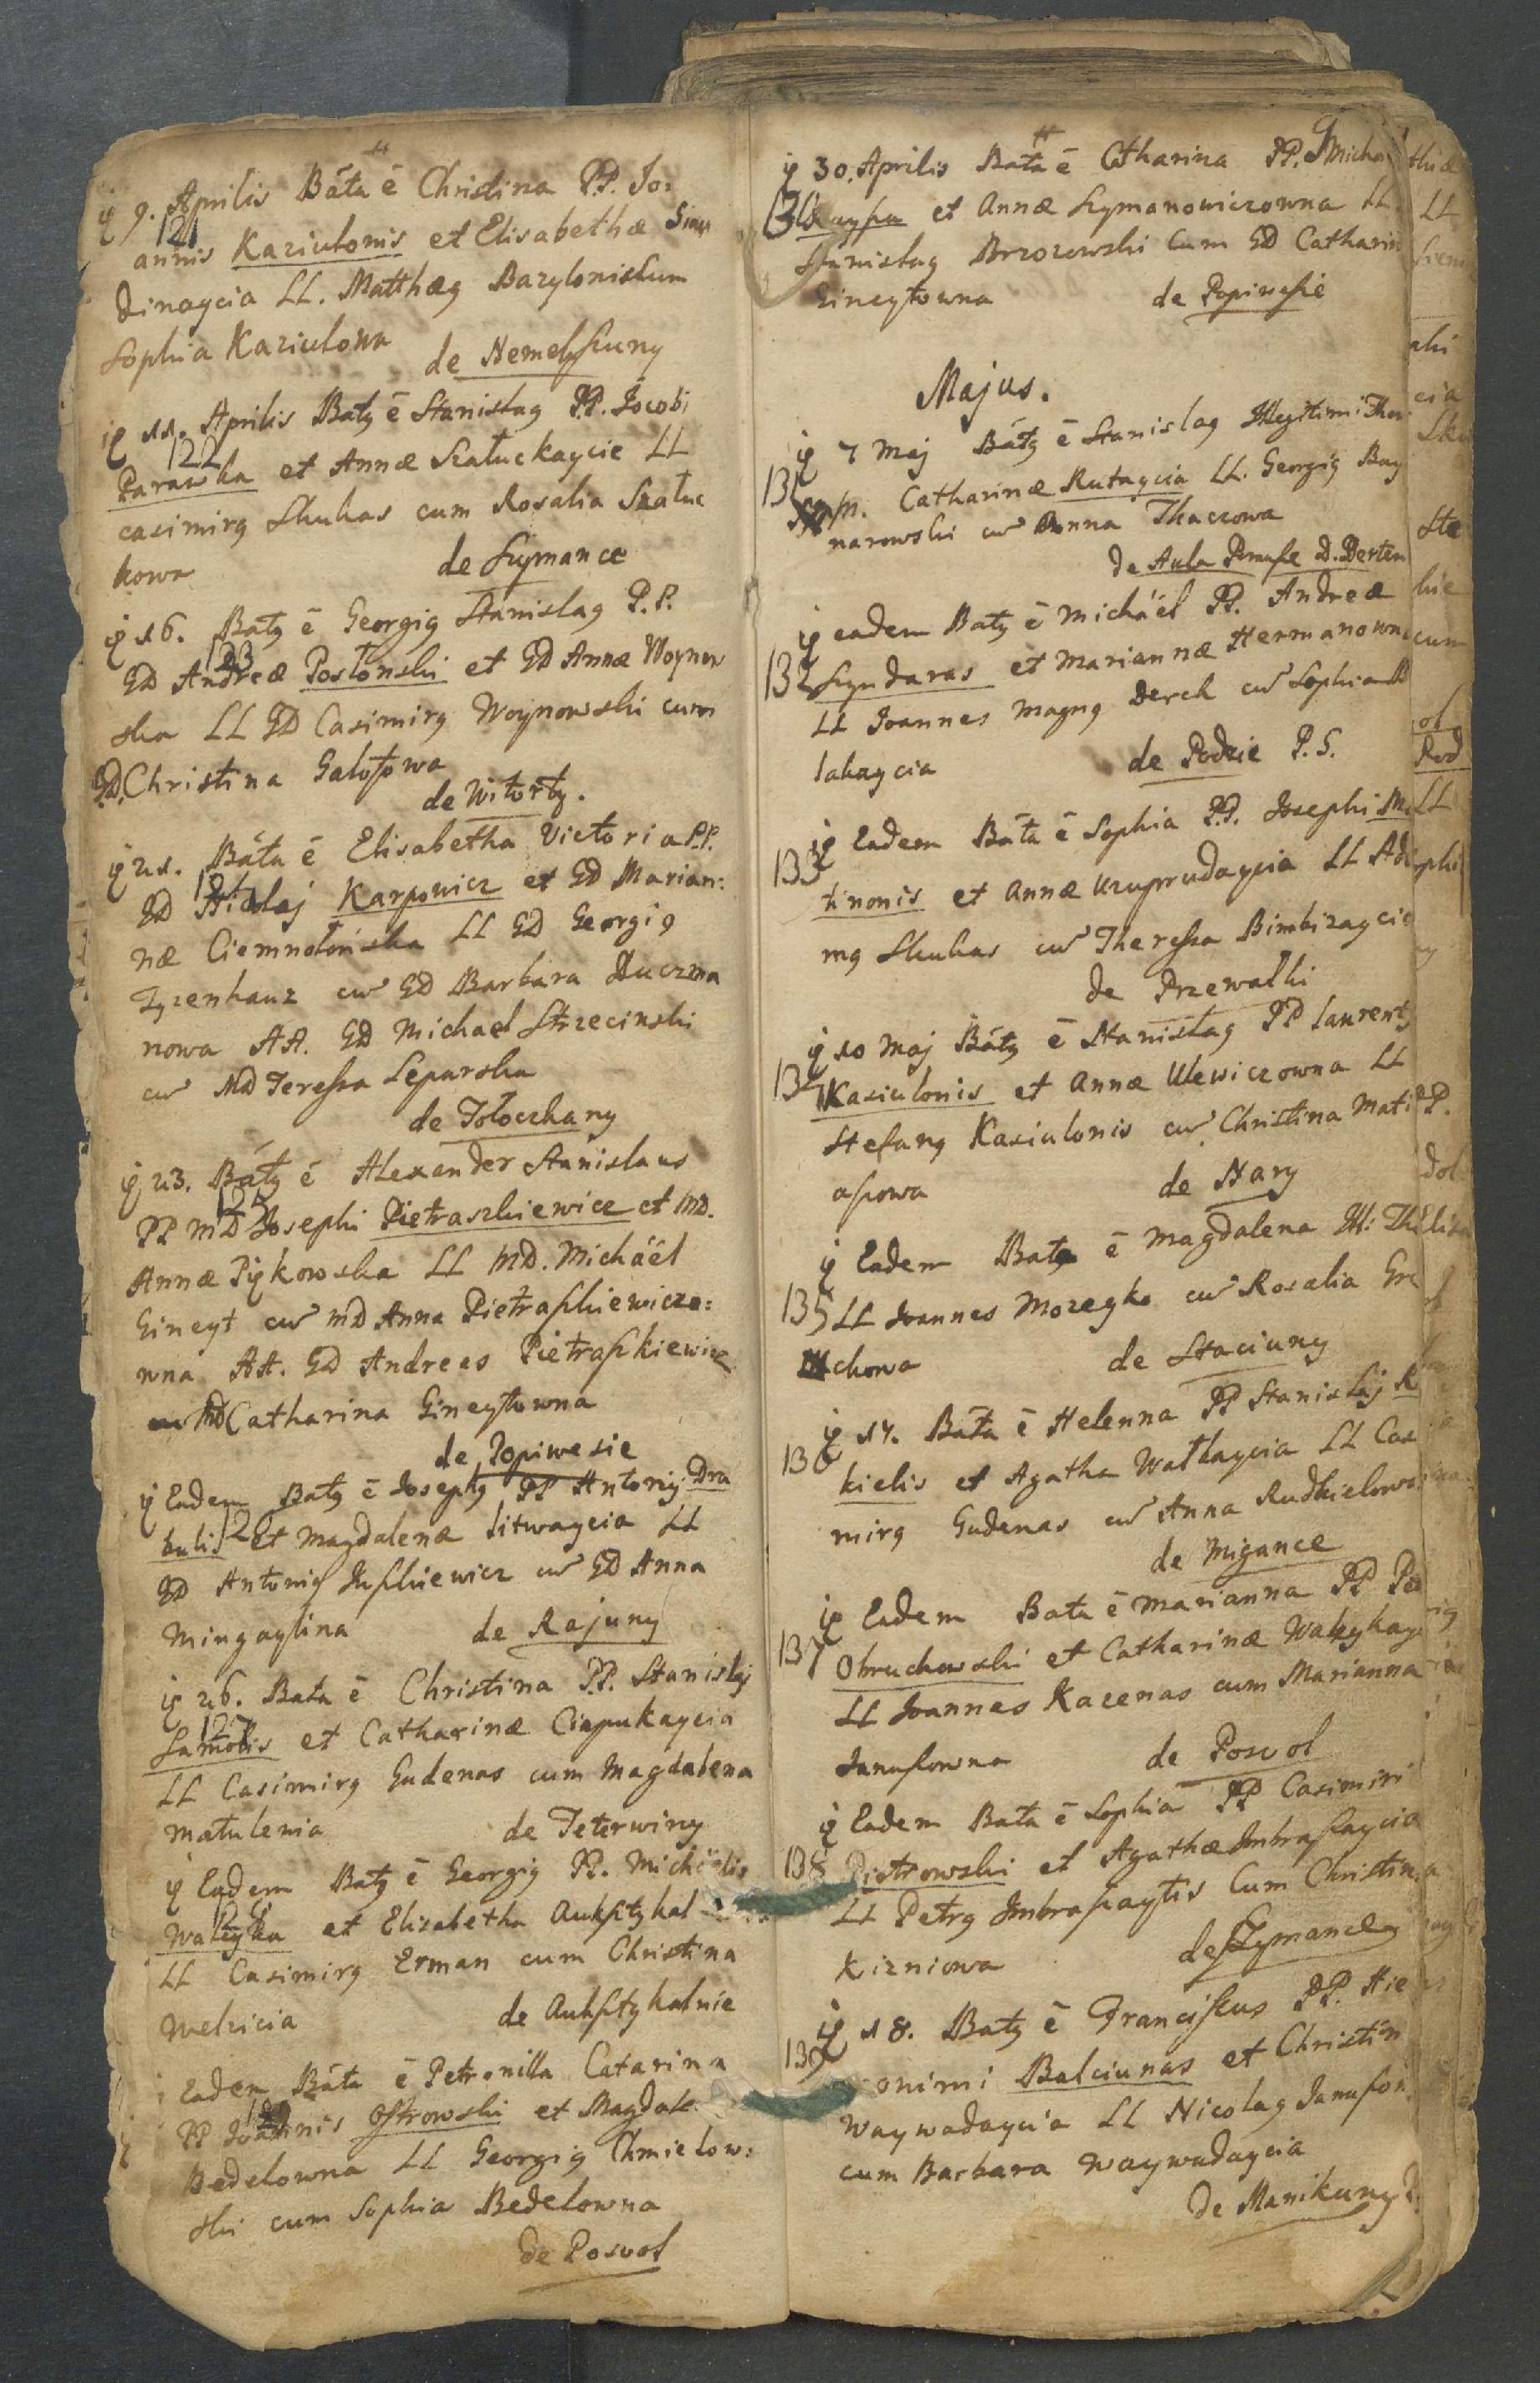 9. Aprilis Bata ē Christina P.P. Jo:
121
annis Kaziulonis et Elisabethæ
dinaycia LL. Matthæg Bazylonis Cum
Sophia Kaziulowa
de Nemeyszuny
11. Aprilis Batg ē Stanislag P.P. Jacobi
122
Parawka et Annæ Szatuckaycie LL
casimirg Skukas cum Rosalia Szatuc
kowa
de Szymance
16. Batg ē Georgig Stanislag P.P.
123
GD Andreæ Postonski et GD Annæ Woynow
ska LL GD Casimirg Woynowski cum
GD. Christina Galotowa
de Witorty.
21. Bata ē Elisabetha Victoria P.P.
124
GD Karpowicz et GD Marian:
næ Ciemnołońska LL GD Georgig
Tyzenhauz cu GD Barbara
nowa AA. GD Michael Strzecinski
cu MD Teressa Lepurska
de Tołoczkany
23. Batg ē Alexander Stanislaus
125
PP MD Josephi Pietraszkiewicz et MD.
Annæ Piękowska LL MD. Michaël
Gineyt cu MD Anna Pietraszkiewiczo:
wna AA. GD Andreas Pietraszkiewicz
cu MD Catharina Gineytowna
de Popiwesie
Eadem Batg ē Josephg PP Antonij Dra
126
bulis Et Magdalenæ Litwaycia LL
GD Antonig Juszkiewicz cu GD Anna
Mingaylina de Rajuny
26. Bata ē Christina P.P. Stanislaj
127
et Catharinæ Ciapukaycia
LL Casimirg Gudenas cum Magdalena
Matulenia de Teterwiny
Eadem Batg ē Georgig PP. Michaelis
128
Wałeyka et Elizabetha Auksztykal
LL Casimirg Erman cum Christina
Welzicia de Auksztykalnie
Eadem Bata ē Petronilla Catarina
129
PP Joannis Ostrowski et Magdale
Bedelowna LL Georgig Chmielow:
ski cum Sophia Bedelowna
de Poswol
9
30. Aprilis Bata ē Catharina PP. Micha
130
et Annæ Szymanowiczowna LL
Stanislag Brzozowski Cum GD Catharin
Gineytowna de Popiwesie
Majus.
7 Maj Batg ē Stanislag Illegitimi Thori
131
Catharinæ Rutaycia LL. Georgig Bay
narowski cu Anna Tkaczowa
de Aula D. Berten
eadem Batg ē Michaël PP. Andreæ
132
Szyndaras et Mariannæ Hermanowna
LL Joannes Magng Derek cu Sophia
lakaycia de Podzie P.S.
Eadem Bata ē Sophia P.P. Josephi M
133
tinonis et Annæ Uzuprudaycia LL Ada
mg Skukas cu Theressa Bimbizaycie
de Przewalki
10 Maj Batg ē Stanislag PP laurenty
134
Kaziulonis et Annæ Ulewiczowna LL
Stefang Kaziulonis cu Christina Mati
aszowa de Nary
Eadem Bata ē Magdalena Ill: Th
135 LL Joannes Mozeyko cu Rosalia Gre
chowa de Staciuny
17. Bata ē Helenna PP Stanislaj R
136
kielis et Agatha Watkaycia LL Casi
mirg Gudenas cu Anna Rudkielowa
de Migance
Eadem Bata ē Marianna PP Pe
137
Obruchowski et Catharinæ Waleykay
LL Joannes Kazenas cum Marianna
Januszowna de Poswol
Eadem Bata ē Sophia PP Casimiri
138 Piotrowski et Agathæ Imbraszaycia
LL Petrg Imbraszaytis Cum Christina
Kizniowa de Szymance
18. Batg ē Franciszus PP. Hie
139
onimi Balciunas et Christin
Waywadaycia LL Nicolag Januszon
cum Barbara Waywadaycia
de Manikuny P.